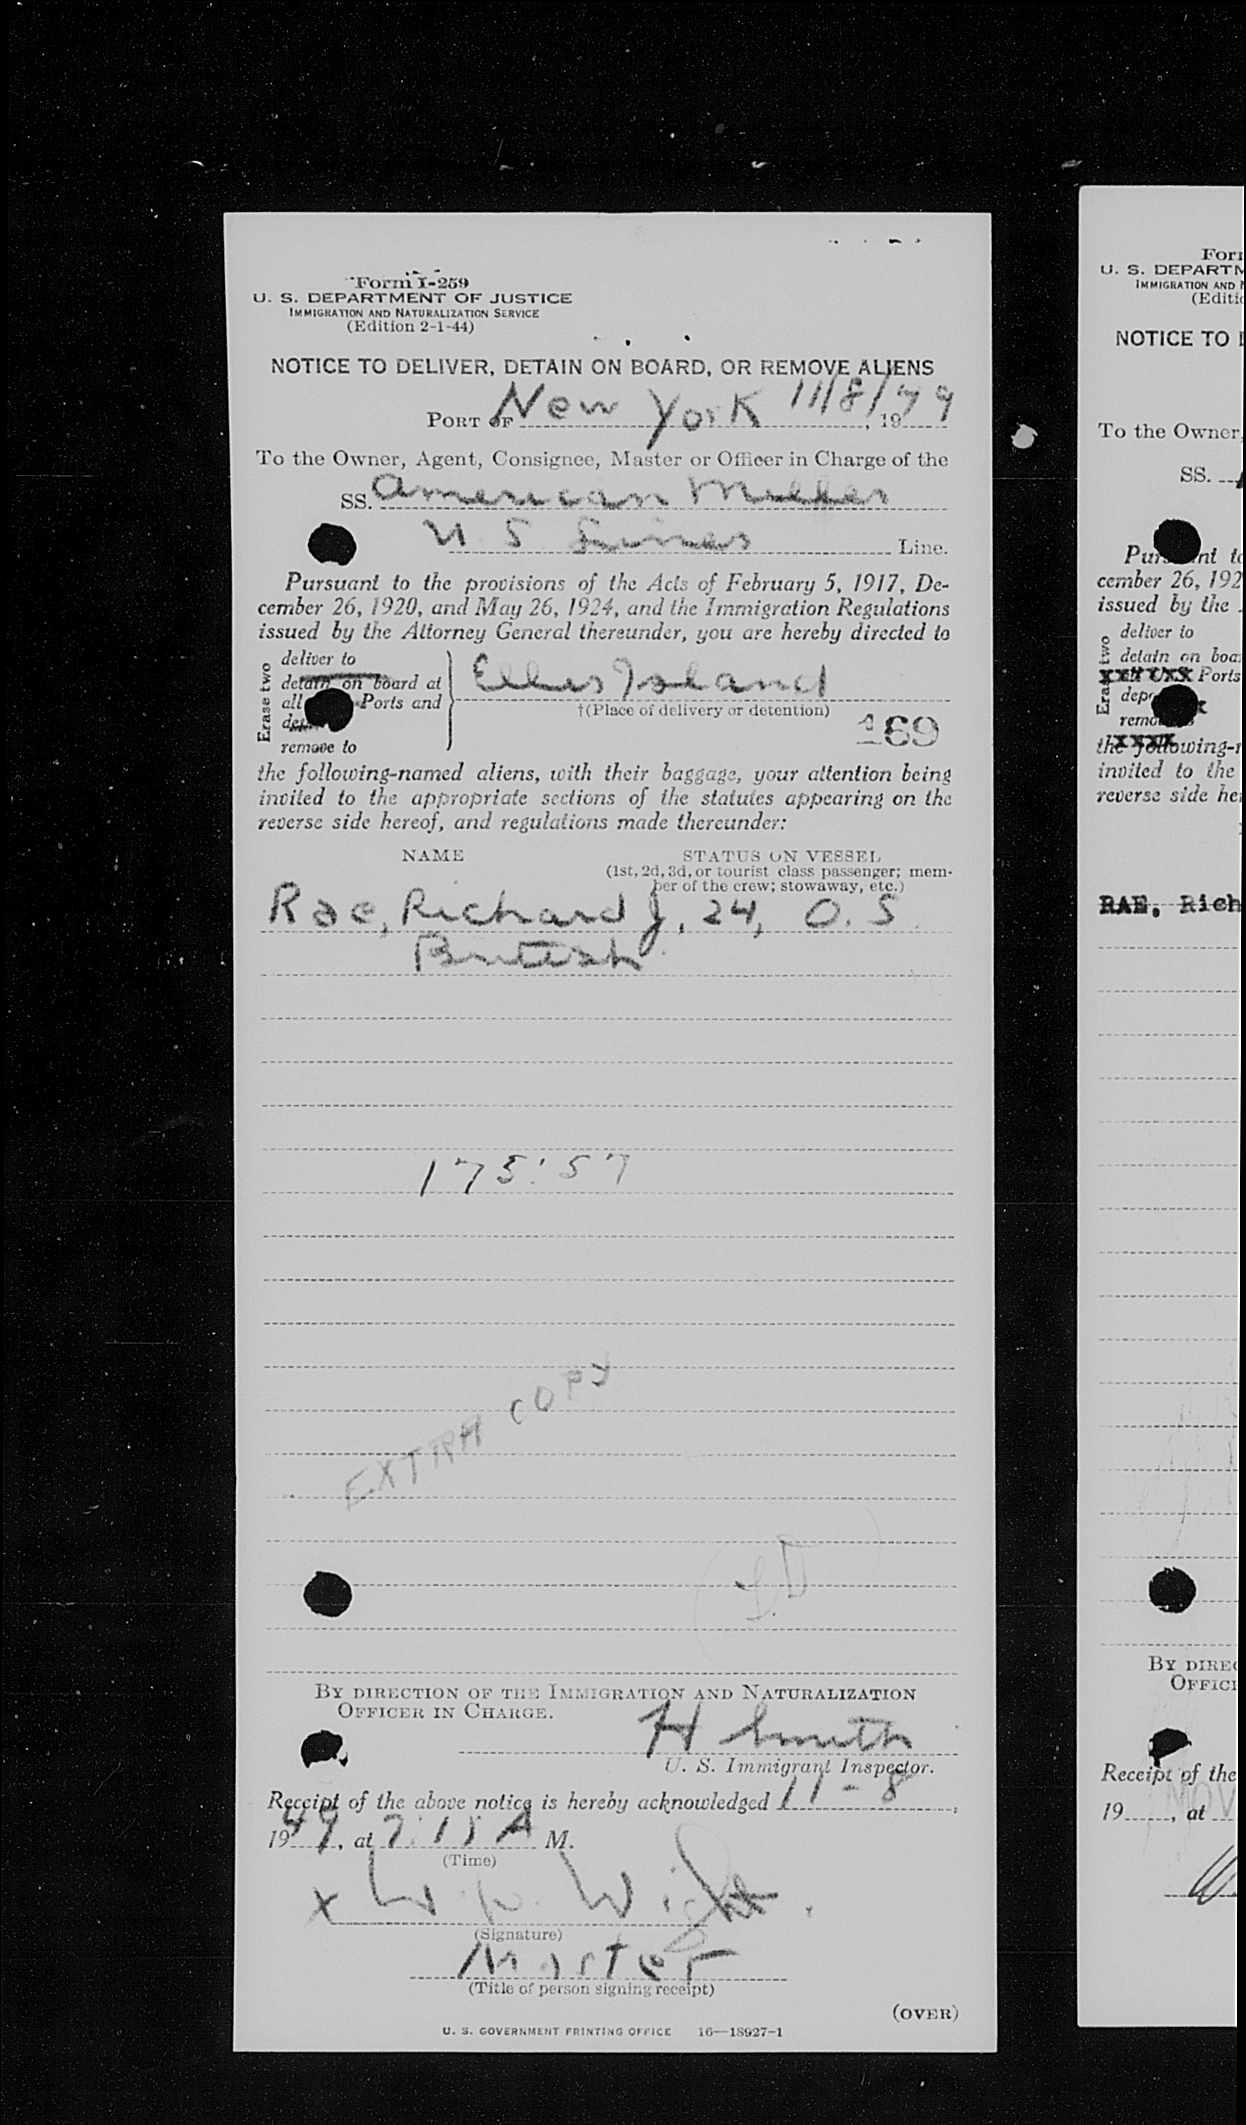 Form I-259
U. S. DEPARTMENT OF JUSTICE
IMMIGRATION AND NATURALIZATION SERVICE
(Edition 2-1-44)
NOTICE TO DELIVER, DETAIN ON BOARD, OR REMOVE ALIENS
PORT OF New York 11/8/, 1949
To the Owner, Agent, Consignee, Master or Officer in Charge of the
SS. American Miller
U S Lines Line.
Pursuant to the provisions of the Acts of February 5, 1917, De-
cember 26, 1920, and May 26, 1924, and the Immigration Regulations
issued by the Attorney General thereunder, you are hereby directed to
Erase two
deliver to
detain on board at
all Ports and
remove to
Ellis Island
†(Place of delivery or detention)
169
the following-named aliens, with their baggage, your attention being
invited to the appropriate sections of the statutes appearing on the
reverse side hereof, and regulations made thereunder:
NAME STATUS ON VESSEL
(1st, 2d, 3d, or tourist class passenger; mem-
ber of the crew; stowaway, etc.)
Rae, Richard J, 24, O. S.
British
175:57
EXTRA COPY
BY DIRECTION OF THE IMMIGRATION AND NATURALIZATION
OFFICER IN CHARGE.
H Smith
U. S. Immigrant Inspector.
Receipt of the above notice is hereby acknowledged 11-8,
1949, at 7.15 A M.
(Time)
x W. P. Wight.
(Signature)
Master
(Title of person signing receipt)
(OVER)
U. S. GOVERNMENT PRINTING OFFICE 16—18927-1
Form
U. S. DEPARTM
IMMIGRATION AND N
(Editio
NOTICE TO D
To the Owner,
SS.
cember 26, 192
issued by the
Erase two
deliver to
detain on boa
Ports
the following-n
invited to the
reverse side he
RAE, Rich
BY DIREC
OFFIC
Receipt of the
NOV
19, at